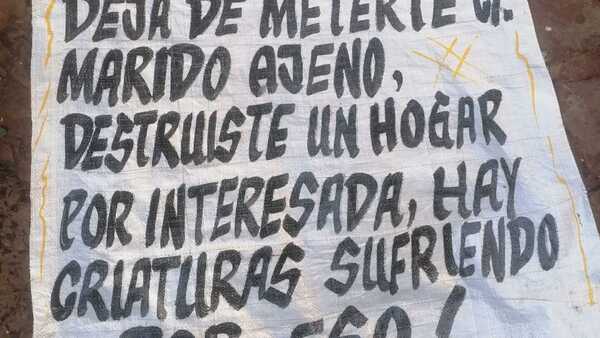 DEJA DE METERTE C.
MARIDO AJENO,
DESTRUISTE UN HOGAR
POR INTERESADA, HAY
CRIATURAS SUFRIENDO
POR ESO!